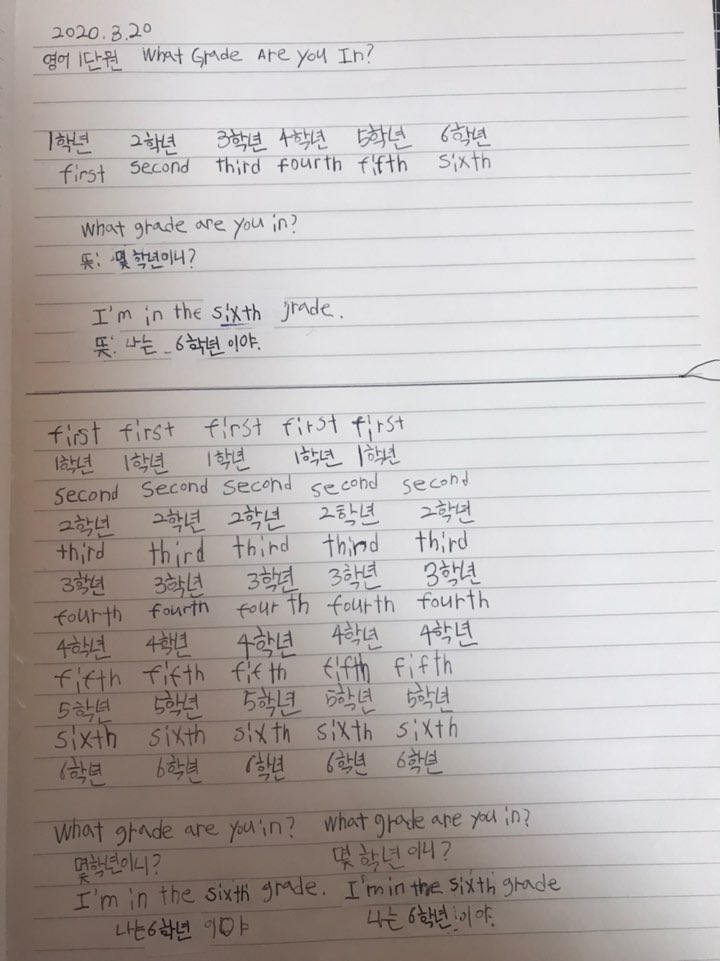 2020.3.20
영어 1단원 What Grade Are you In?
1학년 2학년 3학년 4학년 5학년 6학년
first second third fourth fifth sixth
What grade are you in?
뜻: 몇 학년이니?
I'm in the sixth grade.
뜻: 나는 6학년 이야.
first first first first first
1학년 1학년 1학년 1학년 1학년
second second second second second
2학년 2학년 2학년 2학년 2학년
third third third third third
3학년 3학년 3학년 3학년 3학년
fourth fourth fourth fourth fourth
4학년 4학년 4학년 4학년 4학년
fifth fifth fifth fifth fifth
5학년 5학년 5학년 5학년 5학년
sixth sixth sixth sixth sixth
6학년 6학년 6학년 6학년 6학년
What grade are you in? What grade are you in?
몇학년이니? 몇 학년이니?
I'm in the sixth grade. I'm in the sixth grade
나는 6학년 이야 나는 6학년 이야.